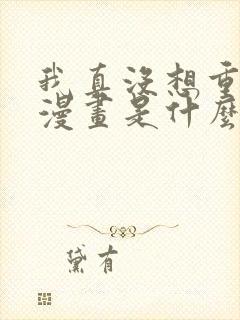 我真没想重
漫畫是什麼
黛有